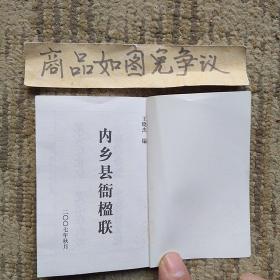 商品如图免争议
王晓杰 编
内乡县衙楹联
二〇〇七年秋月